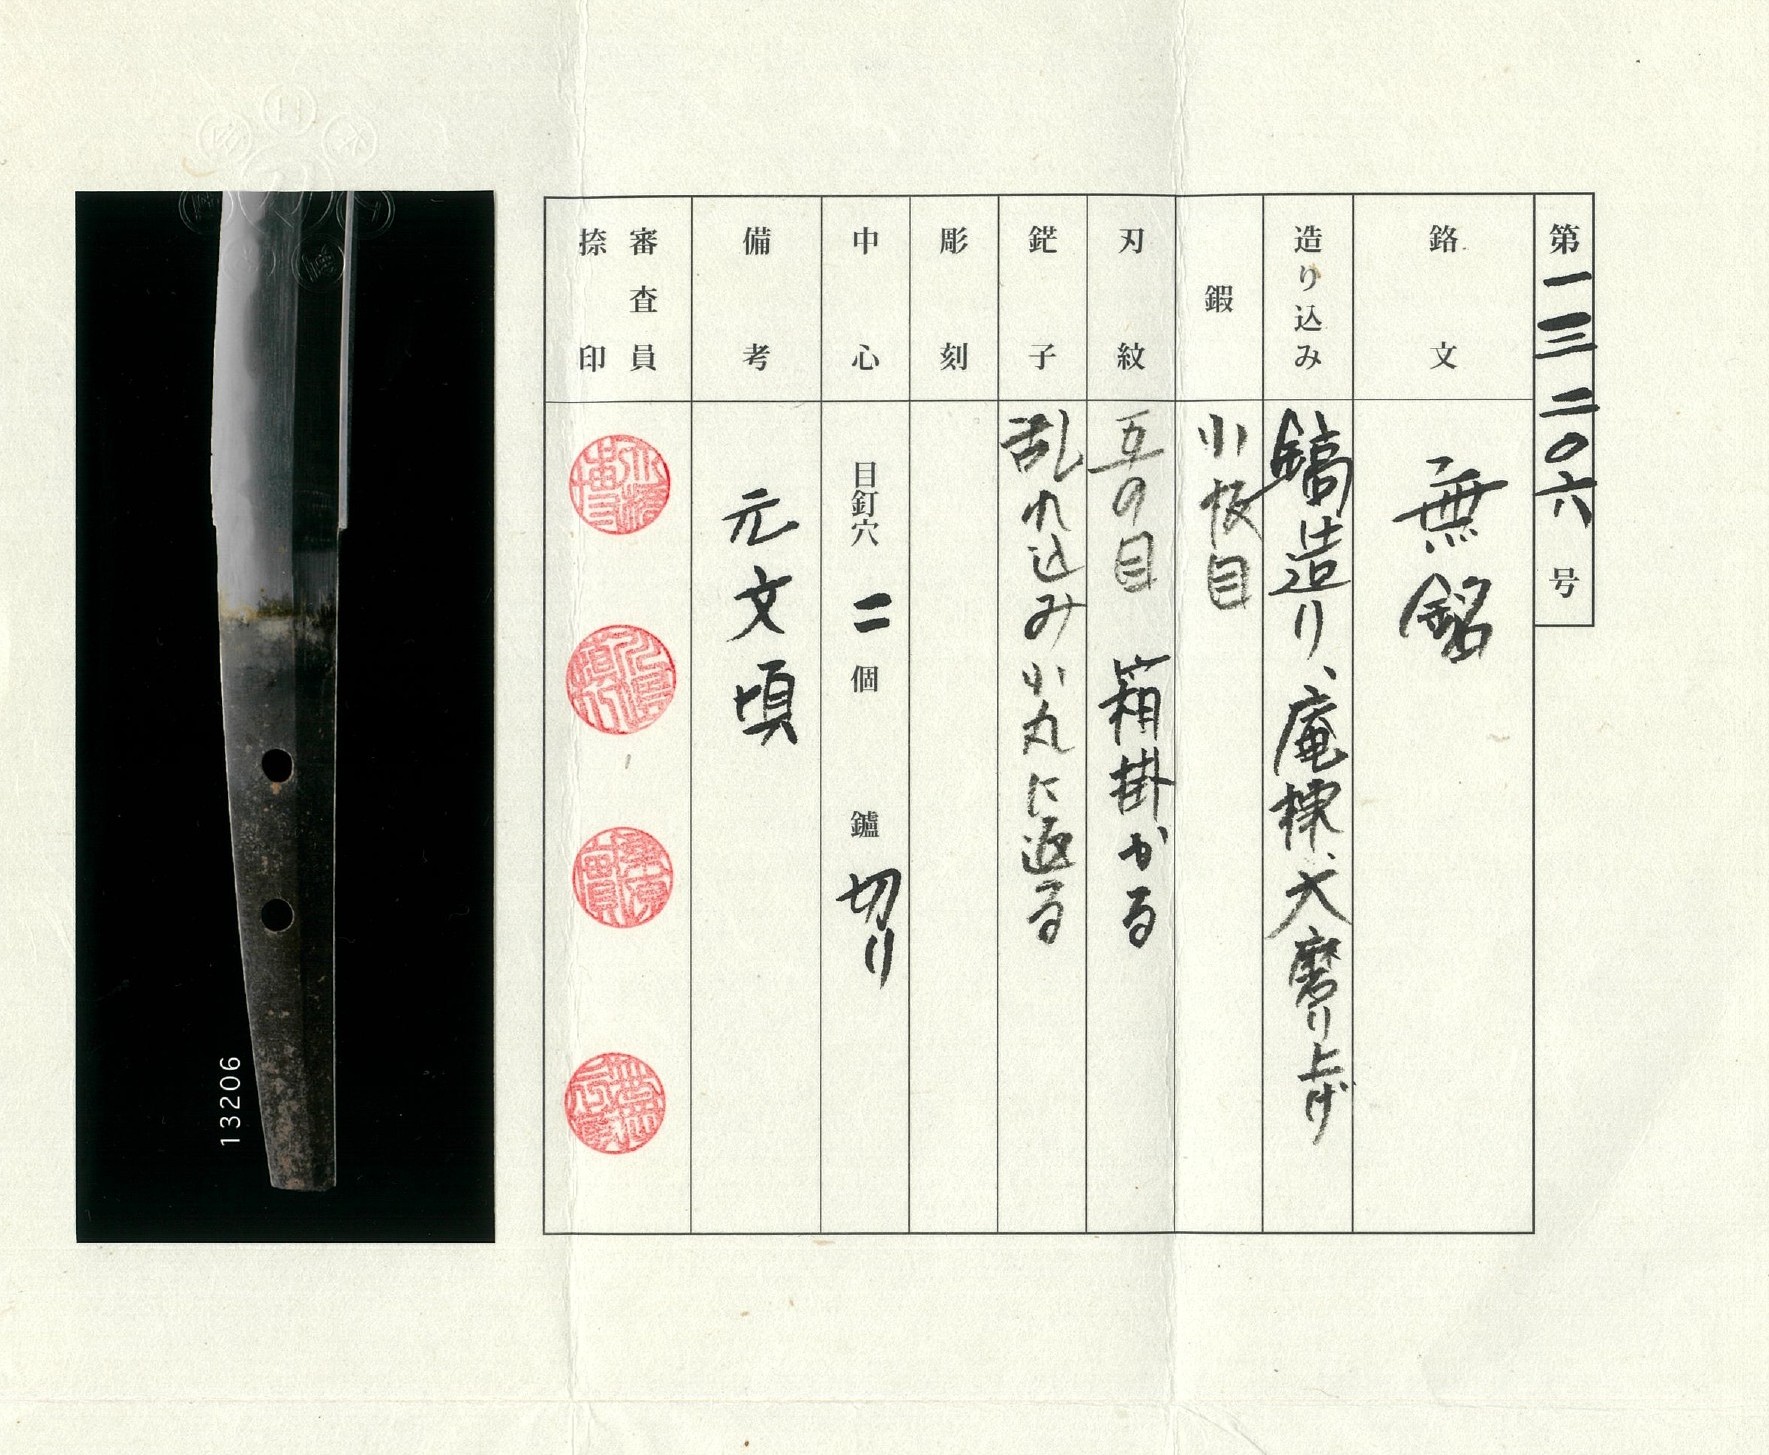 第一三二〇六号
銘文
無銘
造り込み
鎬造り、庵棟、大磨り上げ
鍜
小板目
刃紋
互の目 箱掛かる
鋩子
乱れ込み小丸に返る
彫刻
中心
目釘穴 二 個 鑢 切り
備考
元文頃
審査員
捺印
13206